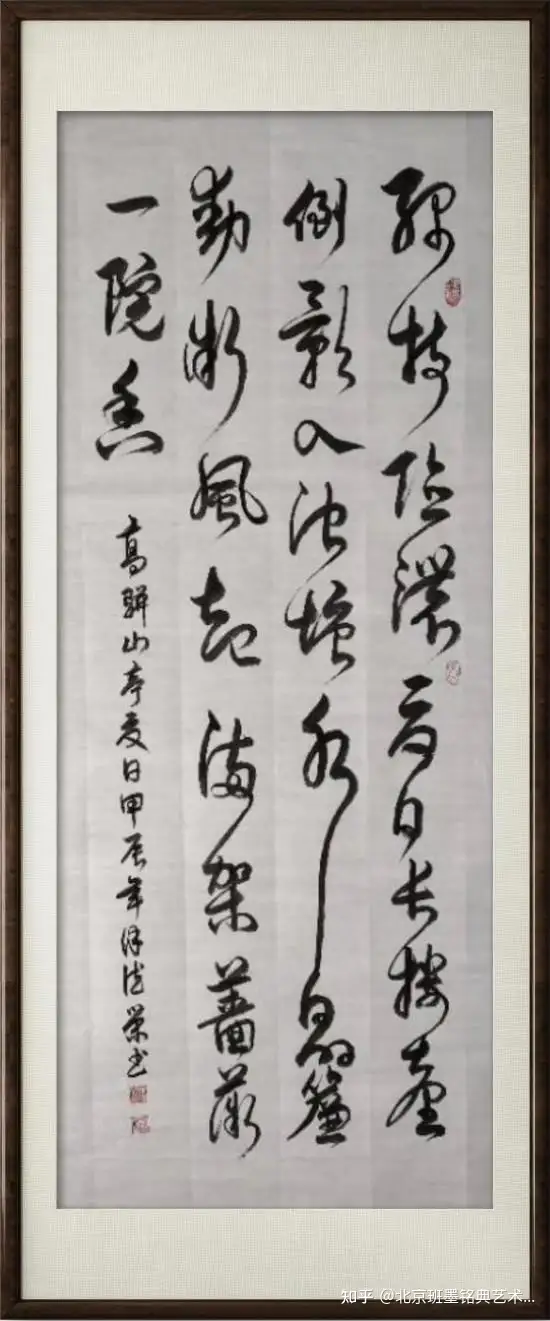 绿树阴濃夏日长楼臺
倒影入池塘水晶簾
動微風起满架薔薇
一院香
高駢山亭夏日甲辰年德荣书
知乎 @北京班墨铭典艺术...